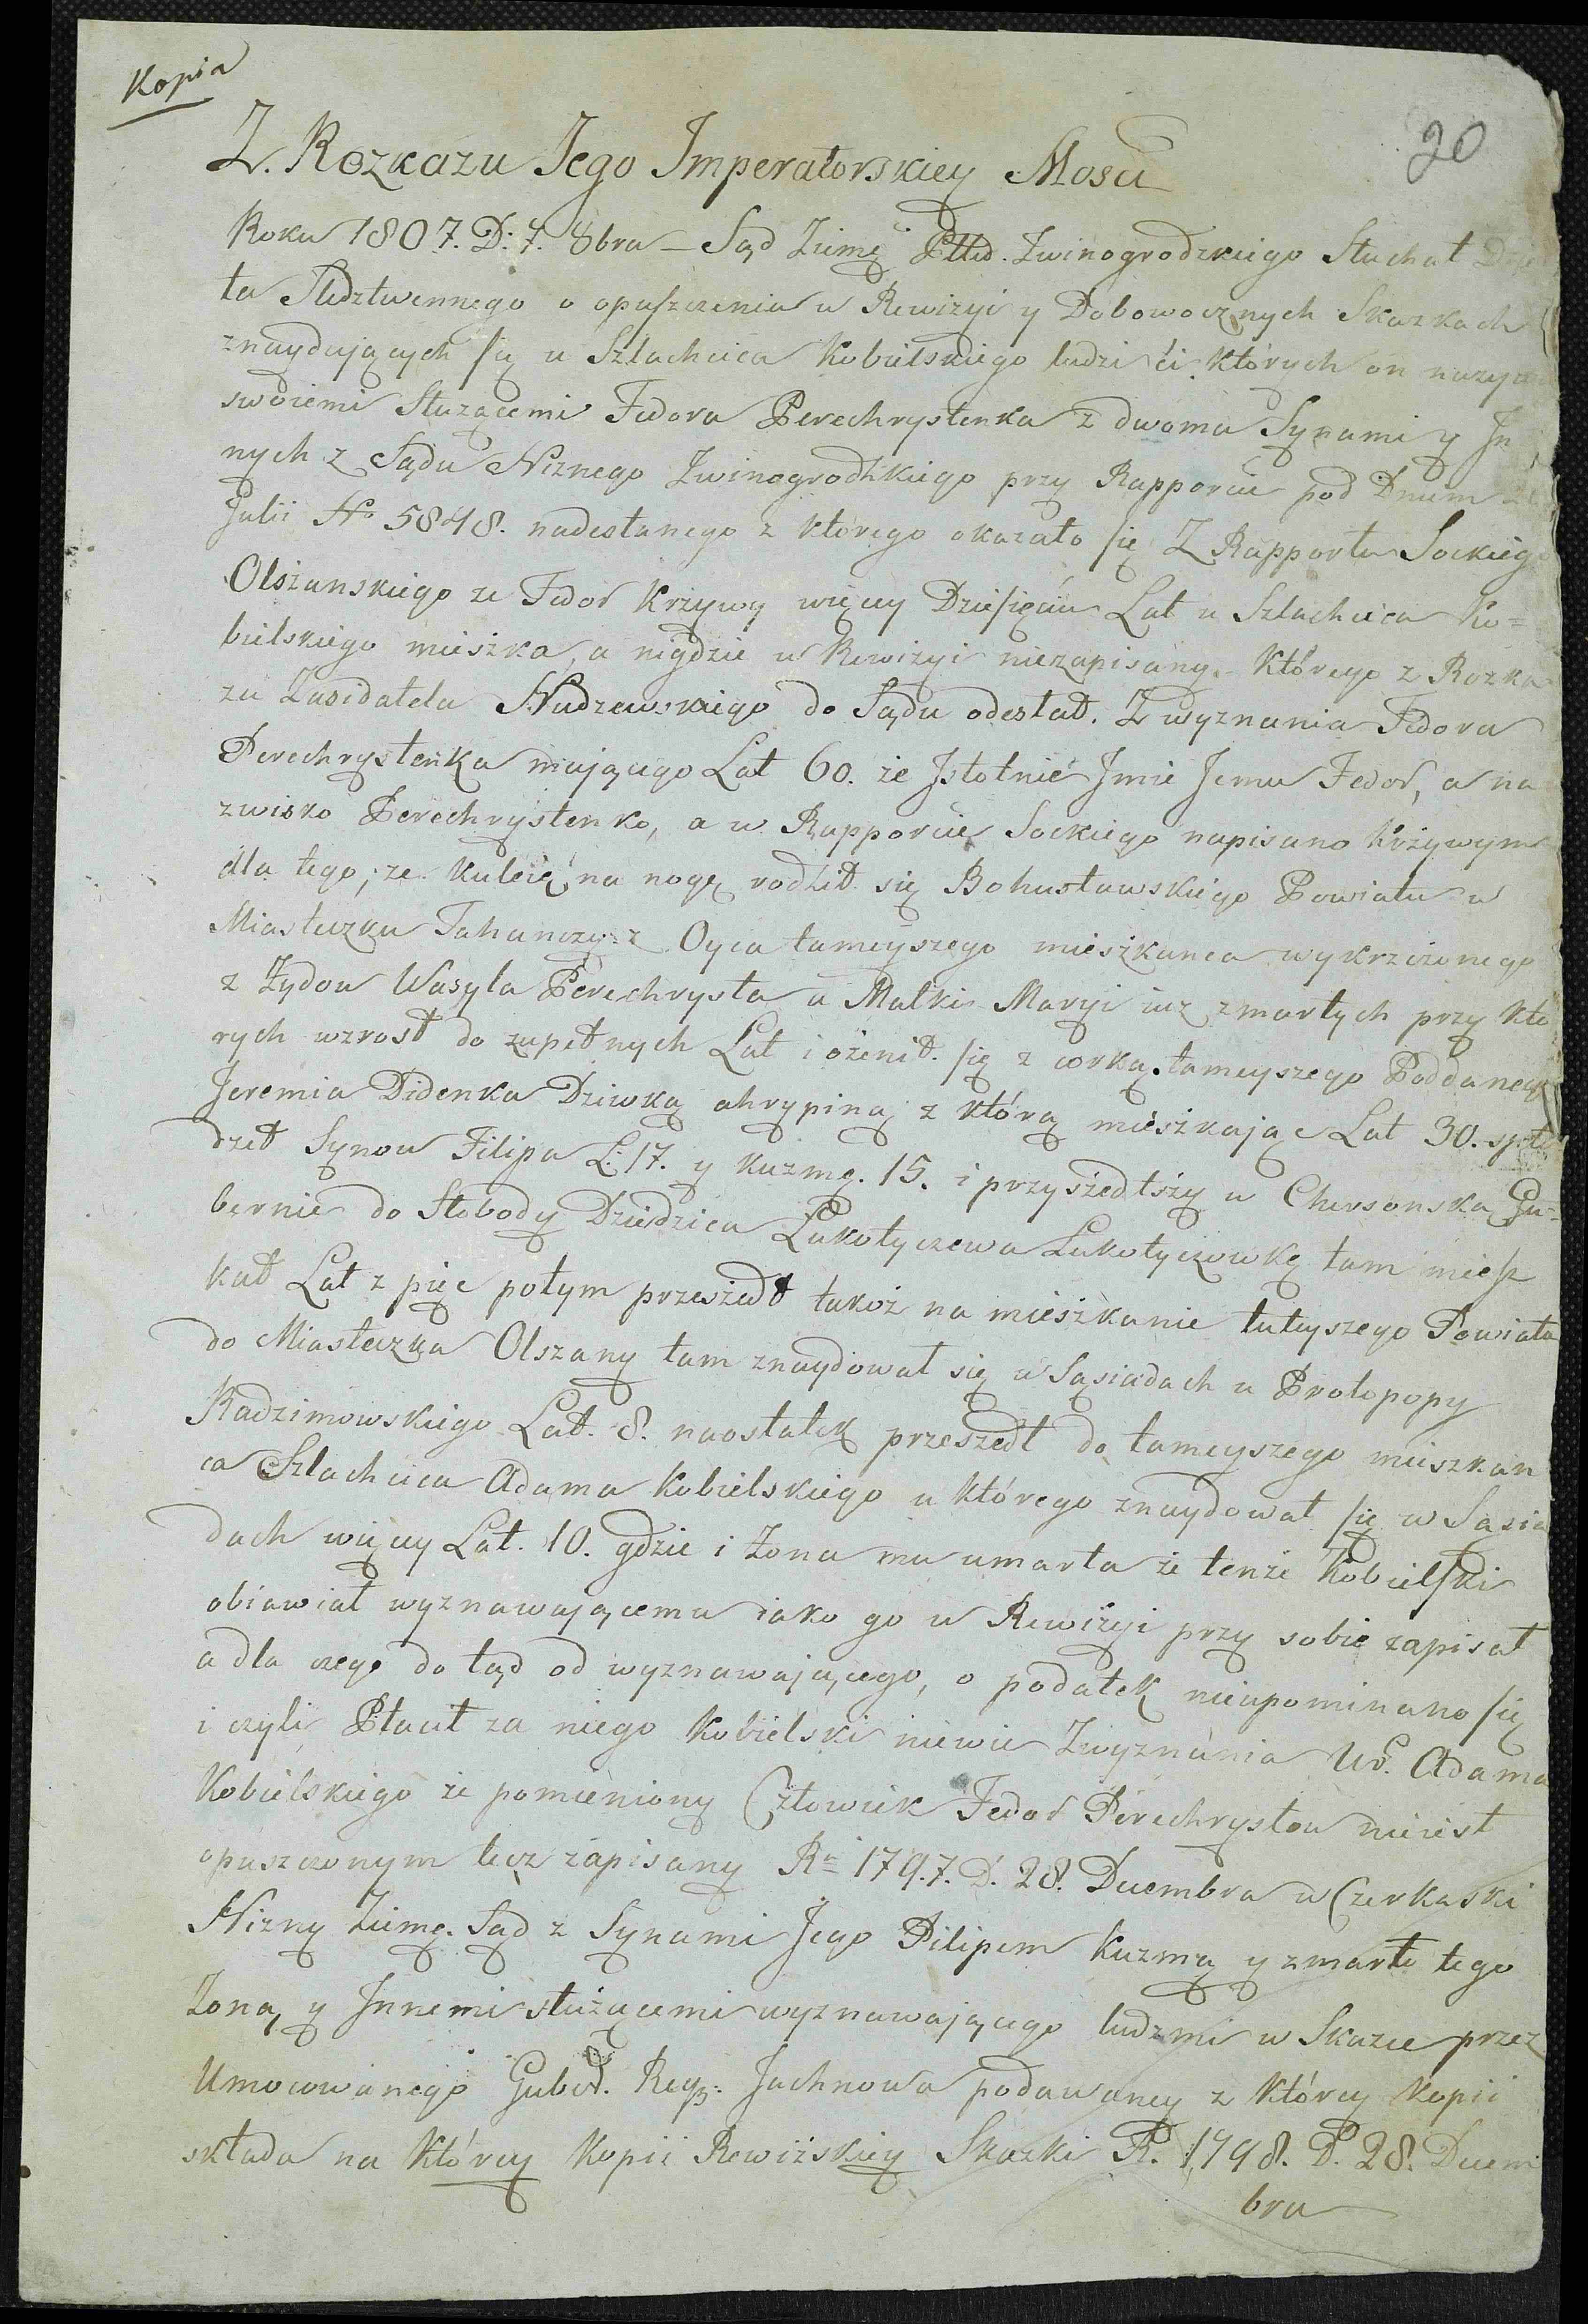 Kopia
20
Z. Rozkazu Jego Imperatorskiey Mosci
Roku 1807. D: 7. 8bra – Sąd Ziemę Pttu. Zwinogrodzkiego Słuchał
ła Sledztwennego o opuszczenia w Rewizyi y Dobowocznych Skazkach
znaydujących się u Szlachcica Kobielskiego ludzi ći których on nazywa
swoiemi Służącemi Fedora Perechrystenka z dwoma Synami y In
nych z Sądu Niznego Zwinogrodzkiego przy Rapporcie pod Dniem
Julii No 5848. nadesłanego z którego okazało się Z Rapportu Sockiego
Olszanskiego ze Fedor Krzywy więcy Dziesięciu Lat u Szlachcica Ko=
bielskiego mieszka, a nigdzie w Rewizyi niezapisany. Którego z Rozka
zu Zasidatela Nudzewskiego do Sądu odesłał. Z wyznania Fedora
Perechrystenka maiącego Lat 60. że Istotnie Imie Jemu Fedor, a na
zwisko Perechrystenko, a w Rapporcie Sockiego napisano Krzywym
dla tego, ze kuleie na nogę rodził się Bohusławskiego Powiatu w
Miasteczku Tahanczy z Oyca tameyszego mieszkanca wykrzczonego
z Żydow Wasyla Perechrysta a Matki Maryi iuz zmarłych przy któ
rych wzrosł do zupełnych Lat i ożenił się z corką tameyszego Poddanego
Jeremia Didenka Dziwką ahrypiną z którą mieszkaiąc Lat 30. spło
dzeł Synow Filipa L: 17. y Kuzmę. 15. i przyszedłszy w Chersonską Gu=
bernie do Słobody Dziedzica Łukotyczewa Łukotyczowkę tam miesz
kał Lat z pięc potym przeszedł takoż na mieszkanie tuteyszego Powiatu
do Miasteczka Olszany tam znaydował się w Sąsiadach u Protopopy
Radzimowskiego Lat. 8. naostatek przeszedł do tameyszego mieszkan
ca Szlachcica Adama Kobielskiego u którego znaydował się w Sąsia
dach więcy Lat. 10. gdzie i żona mu umarła że tenże Kobielski
obiawiał wyznawaiącemu iako go w Rewizyi przy sobie zapisał
a dla czego do tąd od wyznawaiącego, o podatek nieupominano się
i czyli Płacił za niego Kobielski niewie Z wyznania Ur. Adama
Kobielskiego że pomieniony Człowiek Fedor Perechrystow nieiest
opuszczonym lecz zapisany Ru 1797. D. 28. Decembra w Czerkaski
Nizny Ziemę. Sąd z Synami Jego Pilipem Kuzmą y zmarłe tego
Żoną y Innemi służącemi wyznawaiącego ludzmi w Skazce przez
Umocowanego Guber. Reg: Jachnowa podawaney z którey Kopii
składa na którey Kopii Rewizskiey Skazki R. 1798. D. 28. Decem
bra